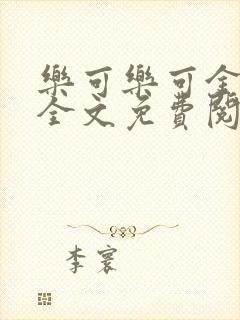 樂可樂可全
全文免費閱
李寰